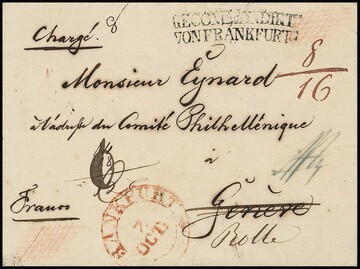 Chargé.
RECOMMANDIRT
VON FRANKFURT.
8
16
Monsieur Eynard
à l'adresse du Comité Philhellénique
à
Genève
Rolle
Franco
FRANKFURT
7
OCT.